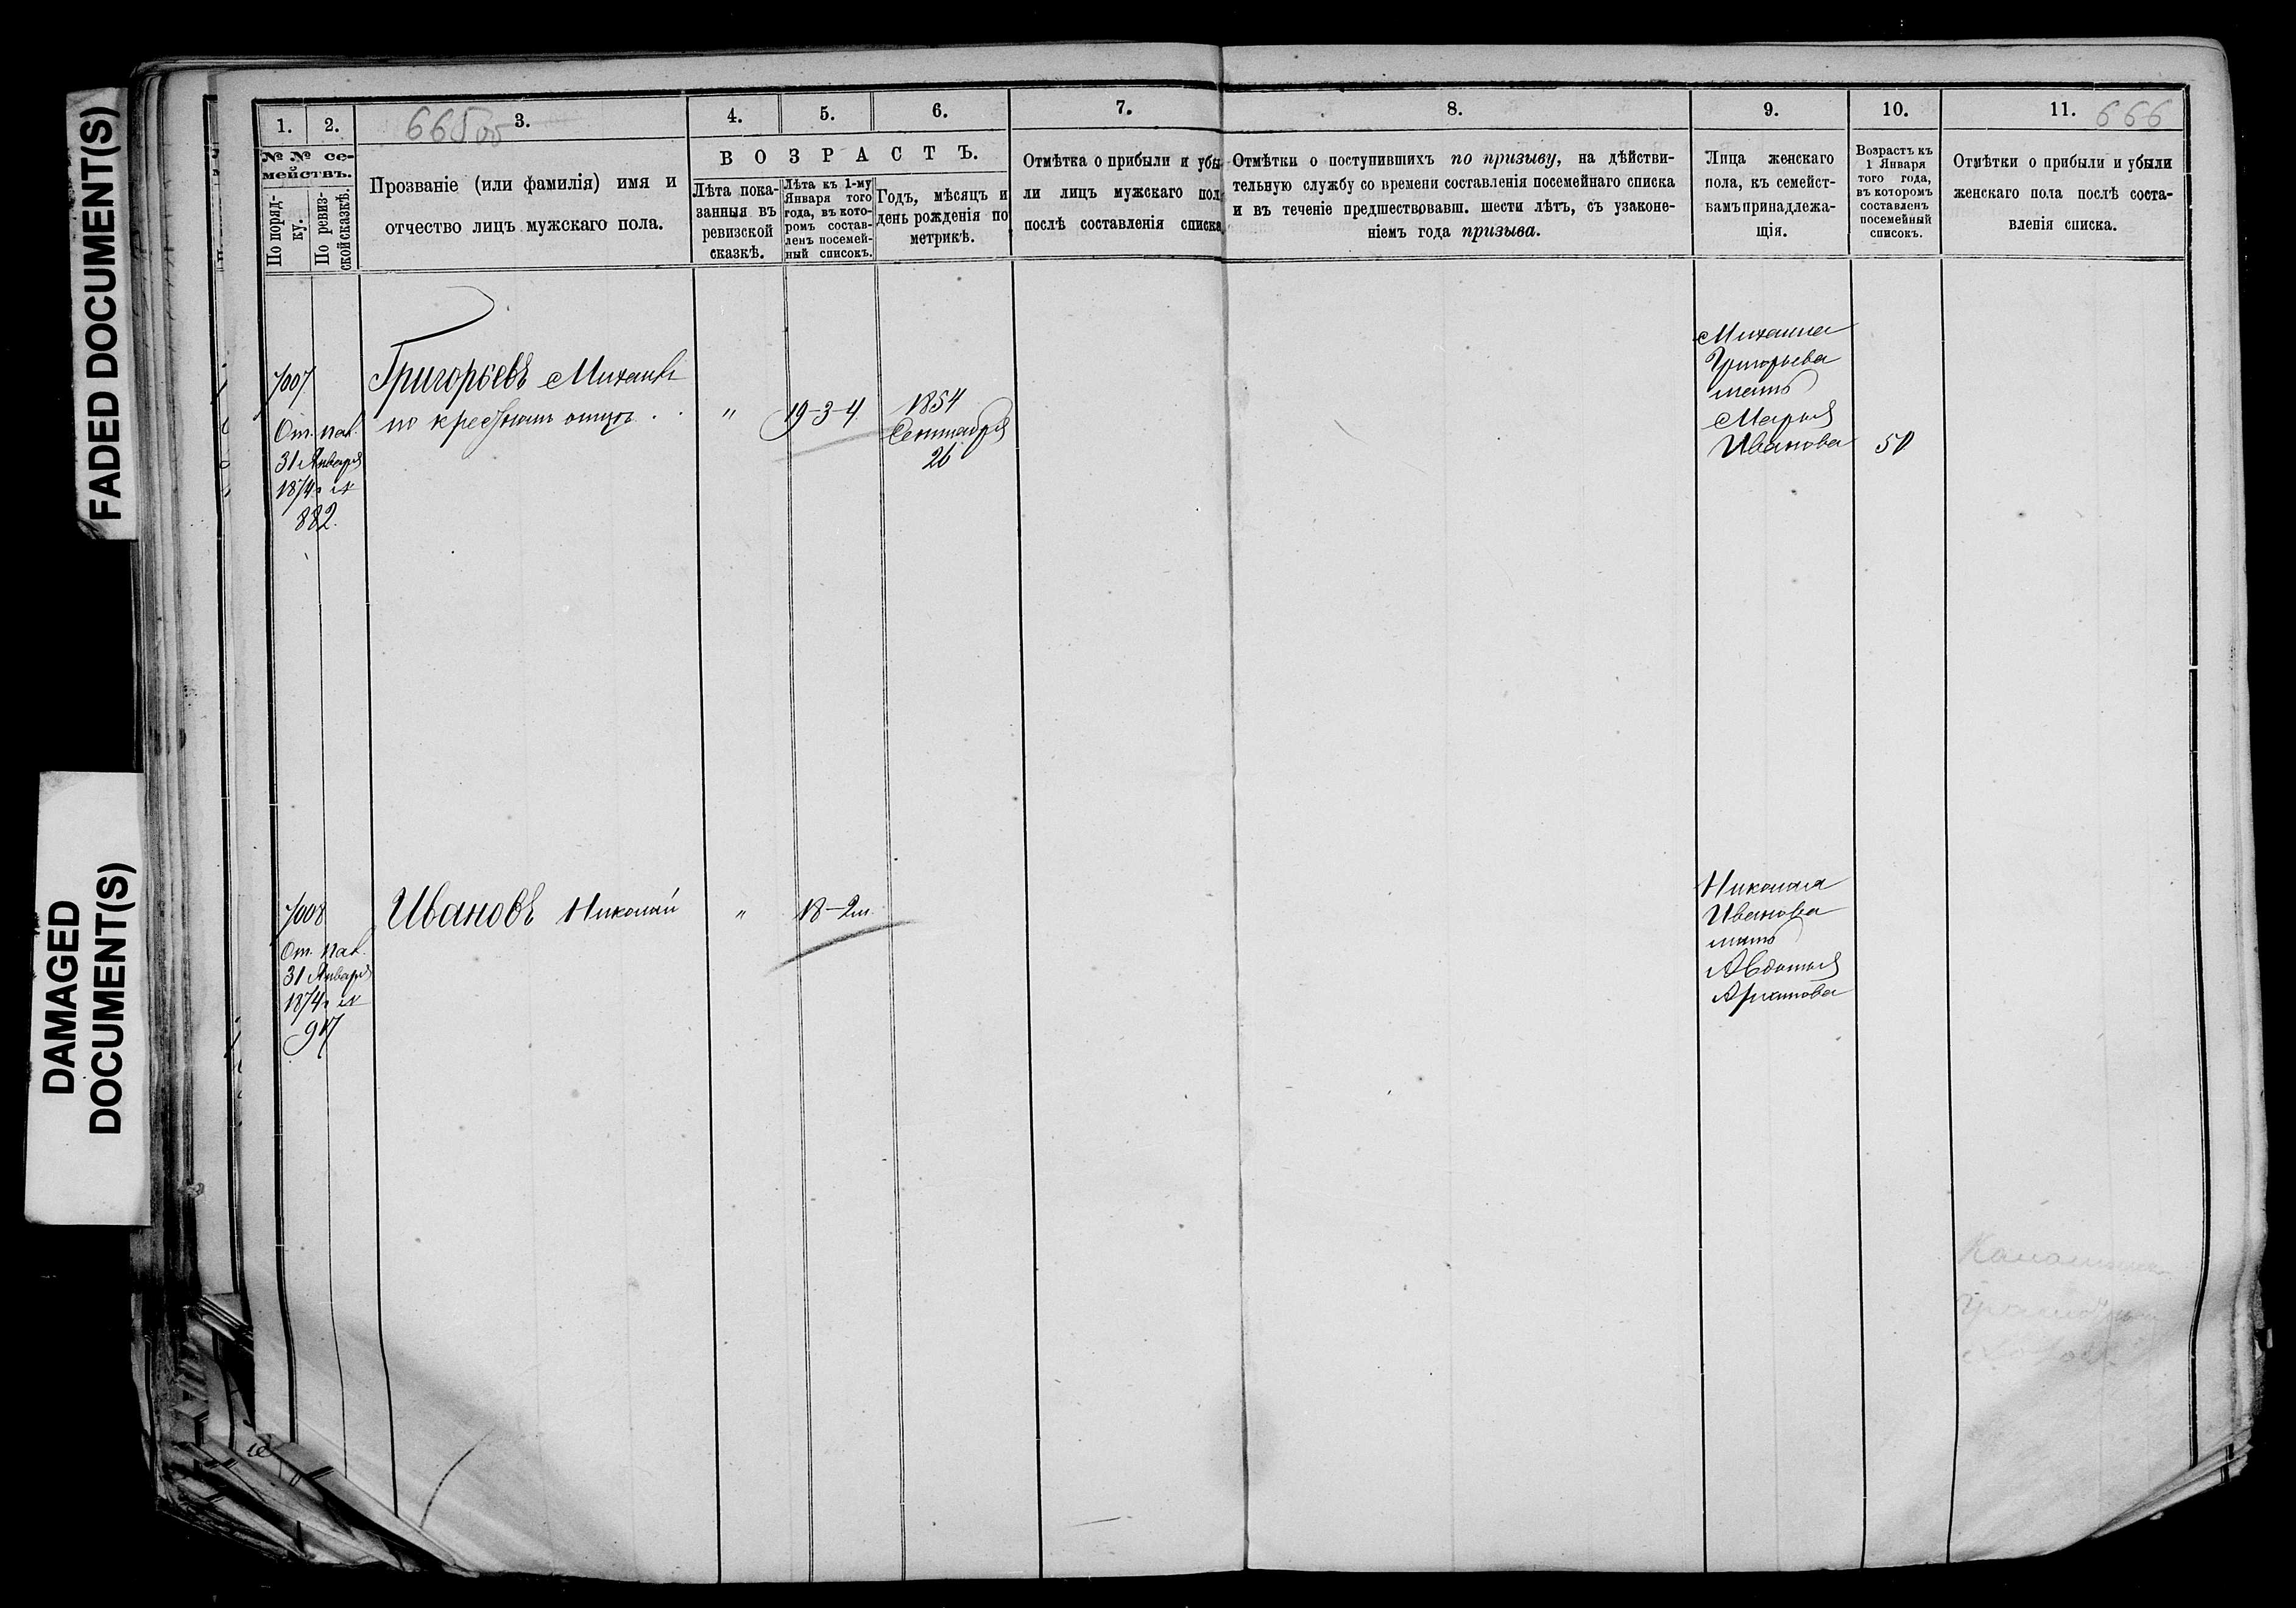 FADED DOCUMENT(S)
DAMAGED
DOCUMENT(S)
1. 2. 3. 4. 5. 6. 7. 8. 9. 10. 11. 666
№ № се-
мействъ.
По поряд-
ку.
По ревиз-
ской сказкѣ.
Прозваніе (или фамилія) имя и
отчество лицъ мужскаго пола.
ВОЗРАСТЪ.
Лѣта пока-
занныя въ
ревизской
сказкѣ.
Лѣта къ 1-му
Января того
года, въ кото-
ромъ состав-
ленъ посемей-
ный списокъ.
Годъ, мѣсяцъ и
день рожденія по
метрикѣ.
Отмѣтка о прибыли и убы-
ли лицъ мужскаго пол
послѣ составленія списка
Отмѣтки о поступившихъ по призыву, на дѣйстви-
тельную службу со времени составленія посемейнаго списка
и въ теченіе предшествовавш. шести лѣтъ, съ узаконе-
ніемъ года призыва.
Лица женскаго
пола, къ семейст-
вамъ принадлежа-
щія.
Возрастъ къ
1 Января
того года,
въ которомъ
составленъ
посемейный
списокъ.
Отмѣтки о прибыли и убыли
женскаго пола послѣ соста-
вленія списка.
7007
От. пал.
31 Января
1874 г. №
882.
Григорьевъ Михаилъ
по крестномъ отцѣ . .
"
19-3-4
1854
Сентября
26
Михаила
Григорьева
мать
Марья
Иванова
50
7008
От. пал.
31 Января
1874 г. №
917
Ивановъ Николай
"
18-2м.
Николая
Иванова
мать
Авдотья